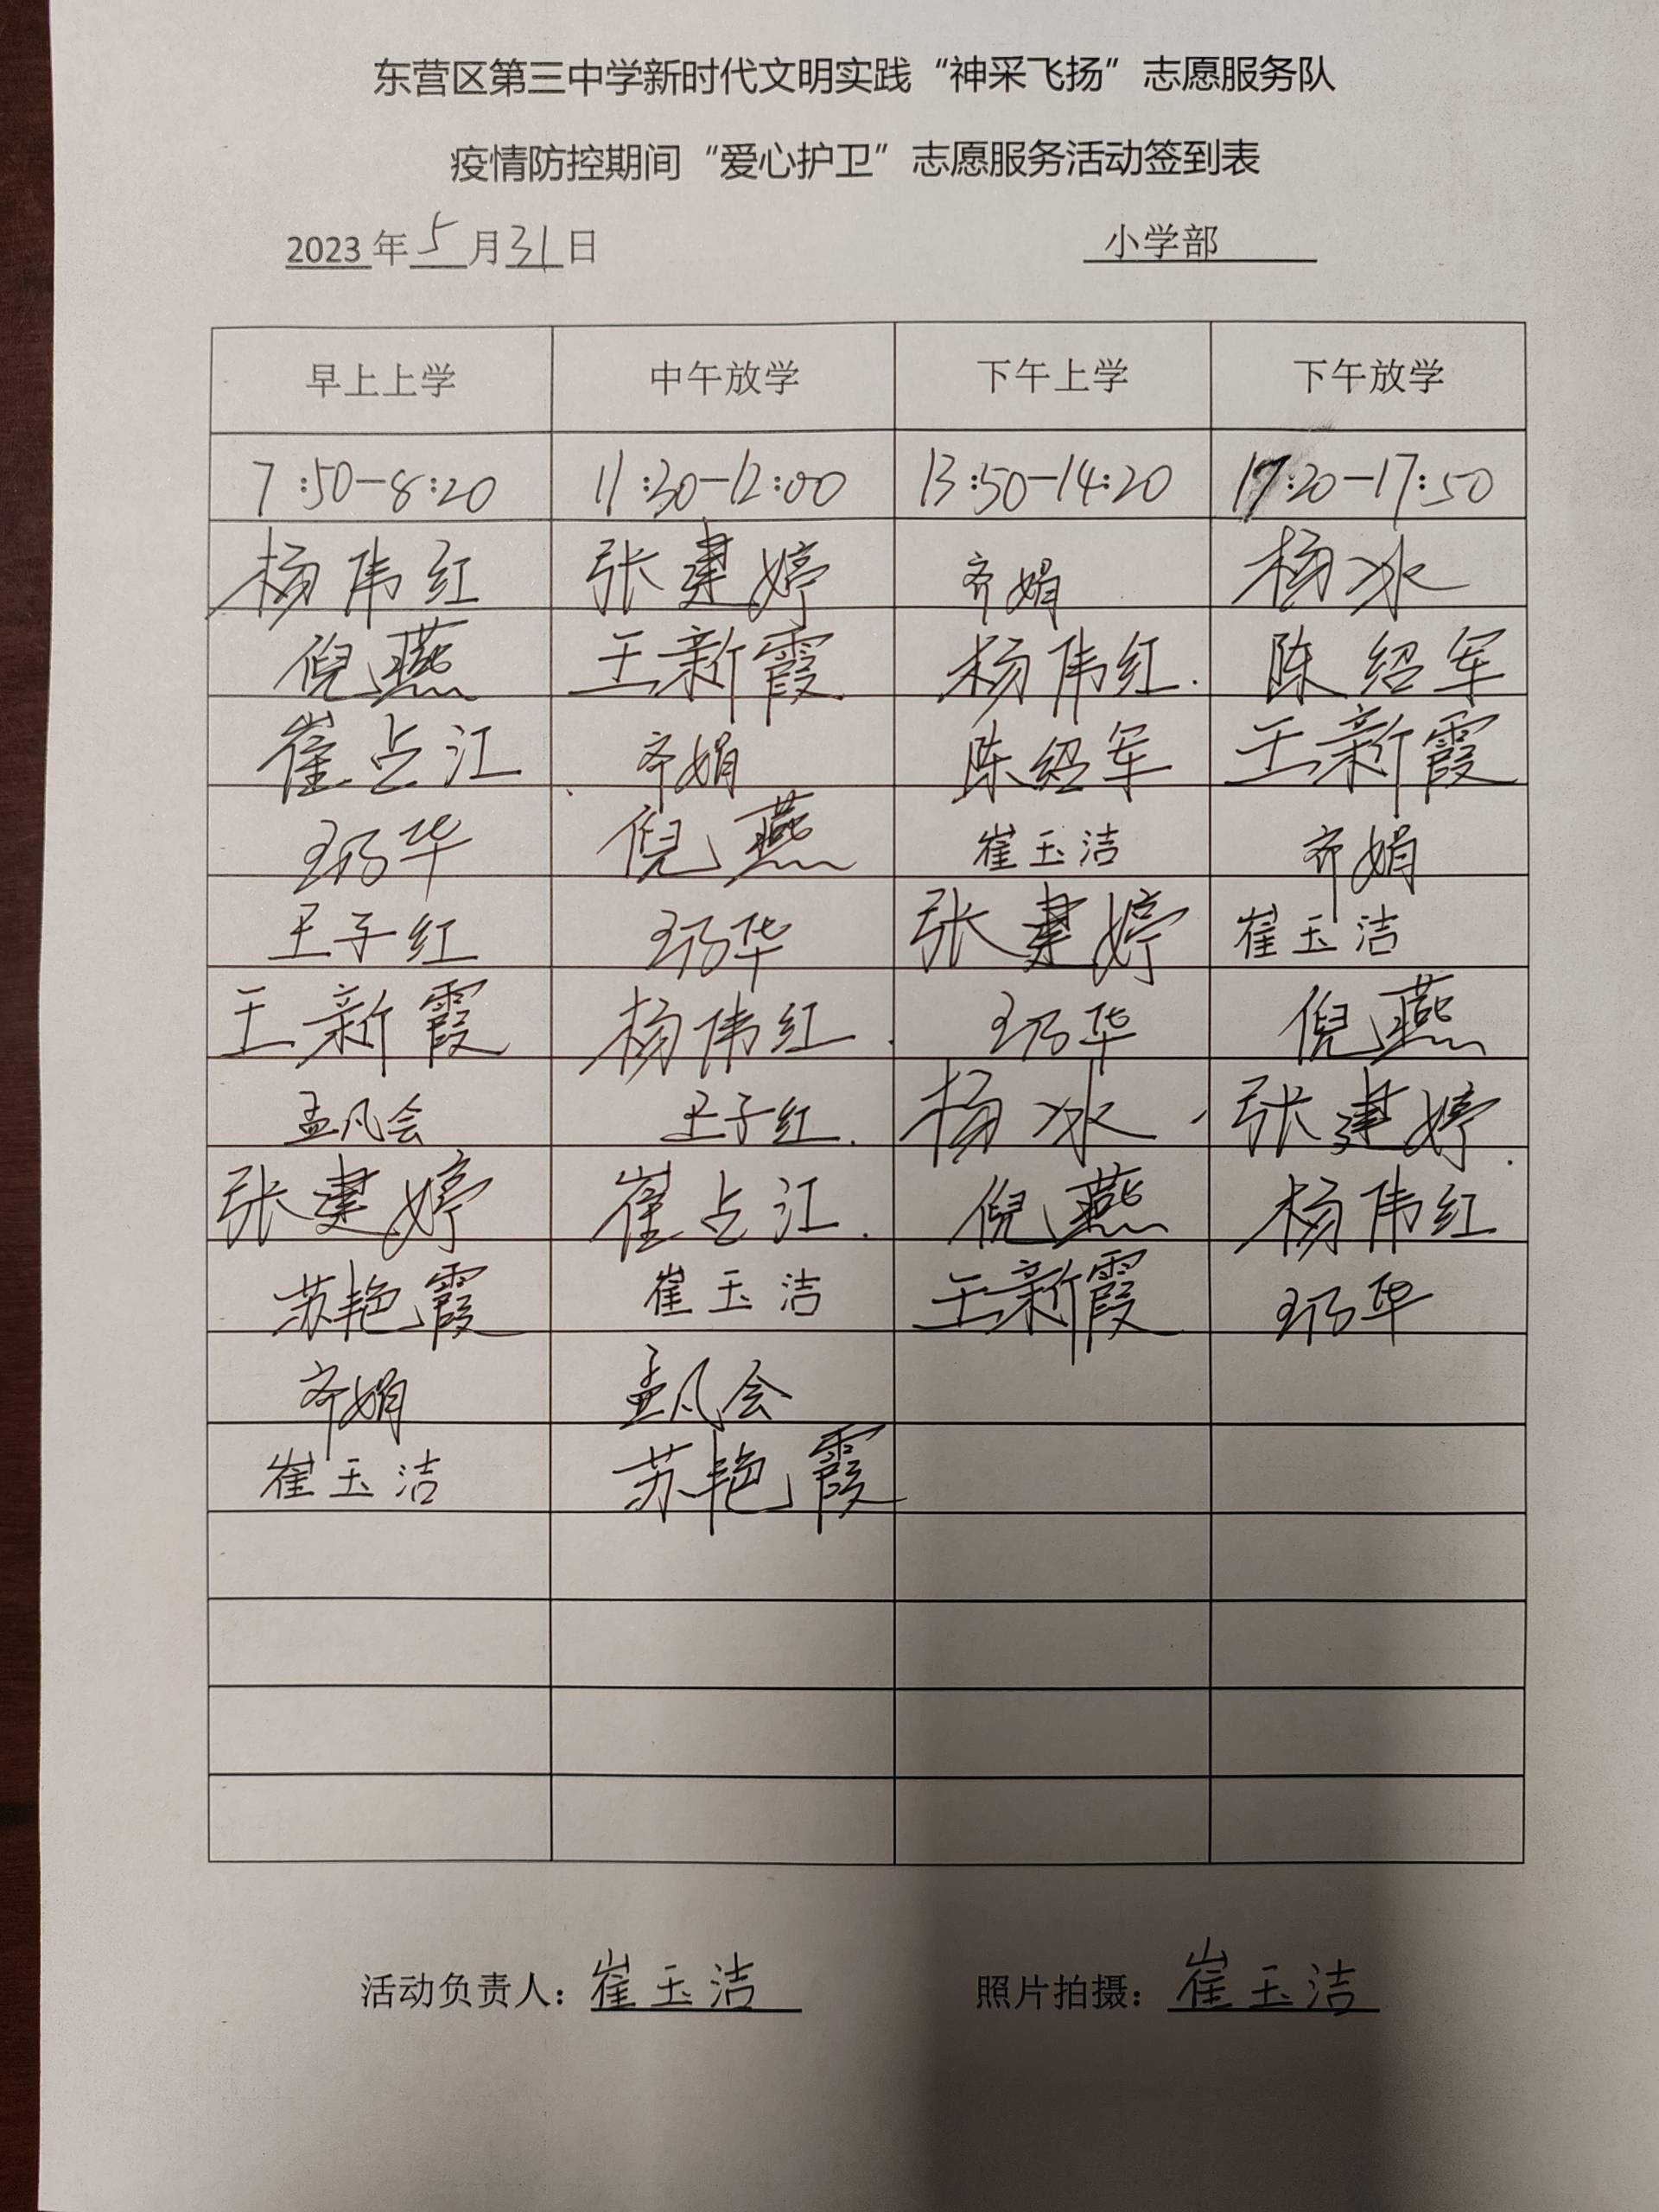 东营区第三中学新时代文明实践“神采飞扬”志愿服务队
疫情防控期间“爱心护卫”志愿服务活动签到表
2023年 5 月 31 日 小学部
早上上学 中午放学 下午上学 下午放学
7:50-8:20 11:30-12:00 13:50-14:20 17:20-17:50
杨伟红 张建婷 齐娟 杨冰
倪燕 王新霞 杨伟红. 陈绍军
崔占江 齐娟 陈绍军 王新霞
华 倪燕 崔玉洁 齐娟
王子红 华 张建婷 崔玉洁
王新霞 杨伟红. 华 倪燕
孟凡会 王子红. 杨冰 张建婷.
张建婷 崔占江. 倪燕 杨伟红
苏艳霞 崔玉洁 王新霞 华
齐娟 孟凡会
崔玉洁 苏艳霞
活动负责人：崔玉洁 照片拍摄：崔玉洁